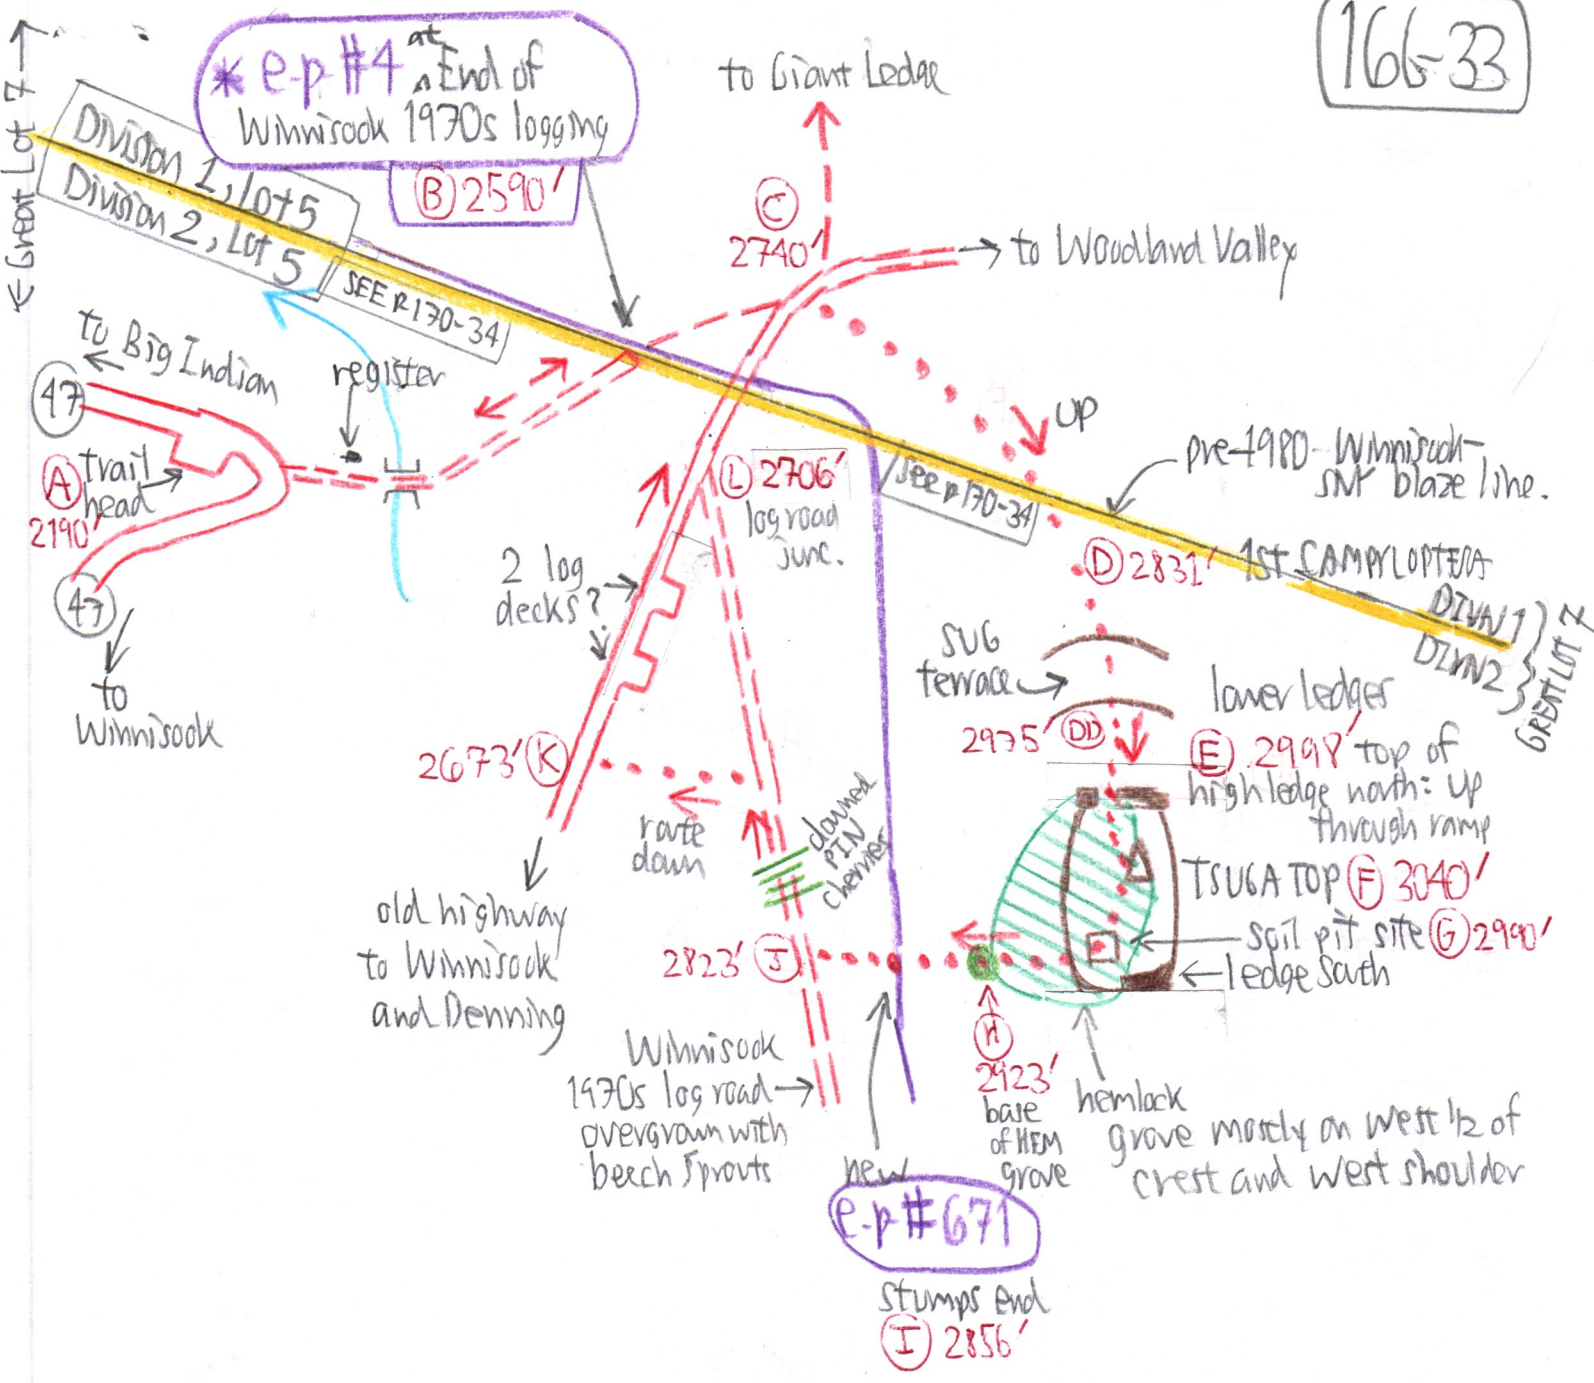 166-33
← Great Lot 7 →
* e-p #4 at End of
Winnisook 1970s logging
(B) 2590'
to Giant Ledge
(C)
2740'
→ to Woodland Valley
Division 1, Lot 5
Division 2, Lot 5
SEE p 170-34
to Big Indian
47
register
(A) trail
head
2190'
47
to
Winnisook
UP
pre-1980-Winnisook-
blaze line.
See p 170-34
(L) 2706'
log road
junc.
2 log
decks?
(D) 2831'
1st CAMPYLOPTERA
DIVN 1
DIVN 2
GREAT LOT 7
SUG
terrace
lower ledges
2975' (DD)
(E) 2998' top of
high ledge north: up
through ramp
2673' (K)
route
down
downed
PIN
cherries
TSUGA TOP (F) 3040'
soil pit site (G) 2990'
ledge south
old highway
to Winnisook
and Denning
2823' (J)
(H)
2923'
base
of HEM
grove
hemlock
grove mostly on west 1/2 of
crest and west shoulder
Winnisook
1970s log road
overgrown with
beech sprouts
new
e-p #671
stumps end
(I) 2856'